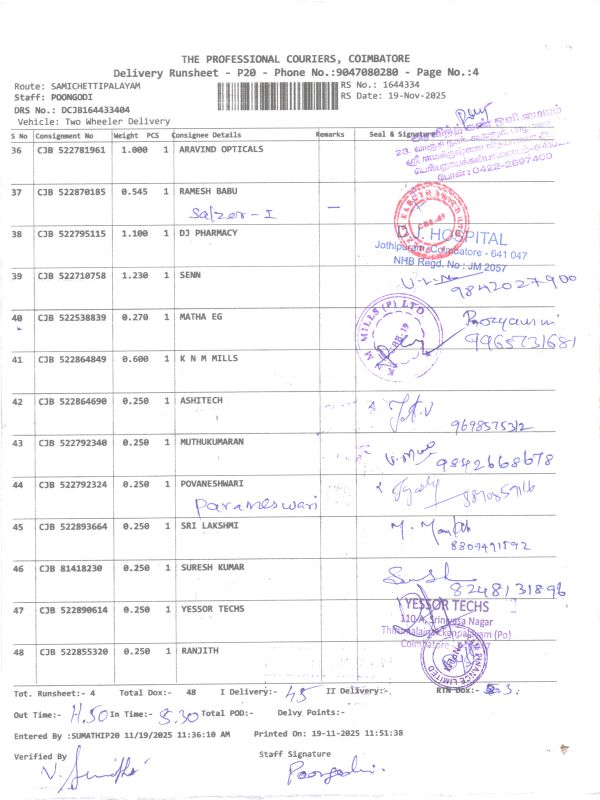 THE PROFESSIONAL COURIERS, COIMBATORE
Delivery Runsheet - P20 - Phone No.:9047080280 - Page No.:4
Route: SAMICHETTIPALAYAM
RS No.: 1644334
Staff: POONGODI
RS Date: 19-Nov-2025
DRS No.: DCJB164433404
Vehicle: Two Wheeler Delivery
S No Consignment No Weight PCS Consignee Details Remarks Seal & Signature
36 CJB 522781961 1.000 1 ARAVIND OPTICALS
போன்: 0422-2697400
37 CJB 522870185 0.545 1 RAMESH BABU
Salzer - I —
38 CJB 522795115 1.100 1 DJ PHARMACY
HOSPITAL
Jothipuram, Coimbatore - 641 047
NHB Regd. No : JM 2057
39 CJB 522710758 1.230 1 SENN
9842027900
40 CJB 522538839 0.270 1 MATHA EG
9965731681
K N M MILLS (P) LTD.
41 CJB 522864849 0.600 1 K N M MILLS
42 CJB 522864690 0.250 1 ASHITECH
9698575312
43 CJB 522792340 0.250 1 MUTHUKUMARAN
9842668678
44 CJB 522792324 0.250 1 POVANESHWARI
Parameswari
45 CJB 522893664 0.250 1 SRI LAKSHMI
8307491592
46 CJB 81418230 0.250 1 SURESH KUMAR
8248131896
47 CJB 522890614 0.250 1 YESSOR TECHS
YESSOR TECHS
110-A, Srinivasa Nagar
48 CJB 522855320 0.250 1 RANJITH
Tot. Runsheet:- 4 Total Dox:- 48 I Delivery:- 45 II Delivery:- RTN Dox:- 3
Out Time:- 11.50 In Time:- 5.30 Total POD:- Delvy Points:-
Entered By :SUMATHIP20 11/19/2025 11:36:10 AM Printed On: 19-11-2025 11:51:38
Verified By Staff Signature